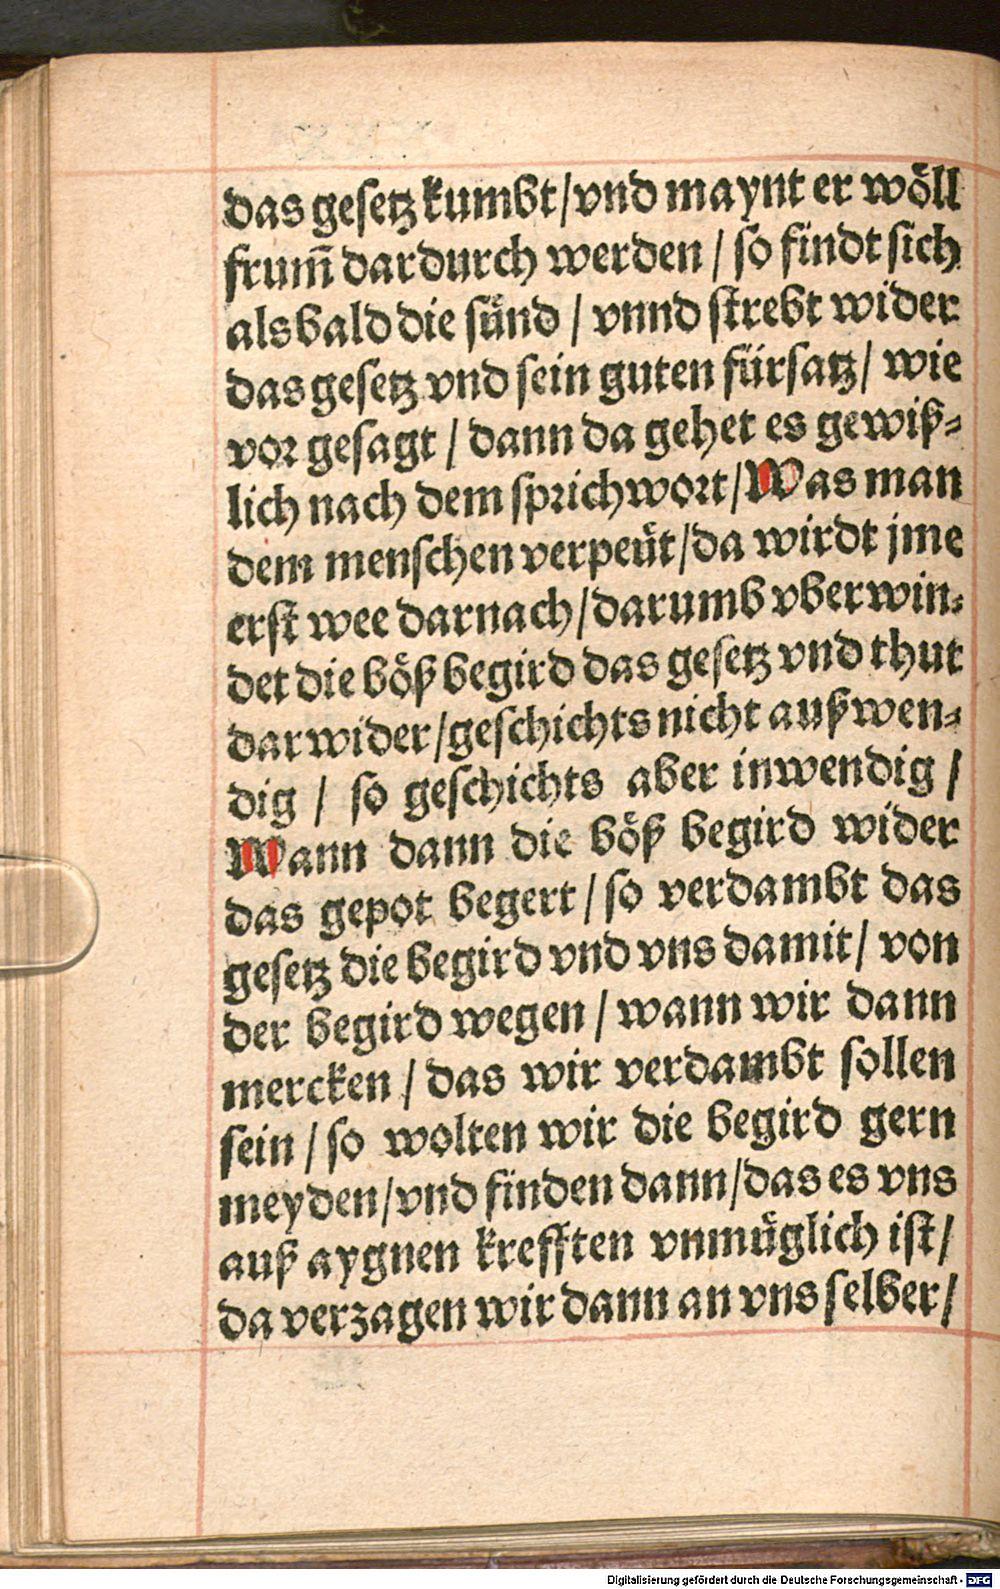 das gesetz kumbt/vnd maynt er wöll
frum̄ dardurch werden / so findt sich
alsbald die sünd / vnnd strebt wider
das gesetz vnd sein guten fürsatz/ wie
vor gesagt / dann da gehet es gewiß-
lich nach dem sprichwort/Was man
dem menschen verpeüt/da wirdt jme
erst wee darnach/darumb vberwin-
det die böß begird das gesetz vnd thut
darwider/geschichts nicht außwen-
dig / so geschichts aber inwendig /
Wann dann die böß begird wider
das gepot begert/so verdambt das
gesetz die begird vnd vns damit/ von
der begird wegen / wann wir dann
mercken / das wir verdambt sollen
sein / so wolten wir die begird gern
meyden/vnd finden dann/das es vns
auß aygnen krefften vnmüglich ist/
da verzagen wir dann an vns selber/
Digitalisierung gefördert durch die Deutsche Forschungsgemeinschaft - DFG